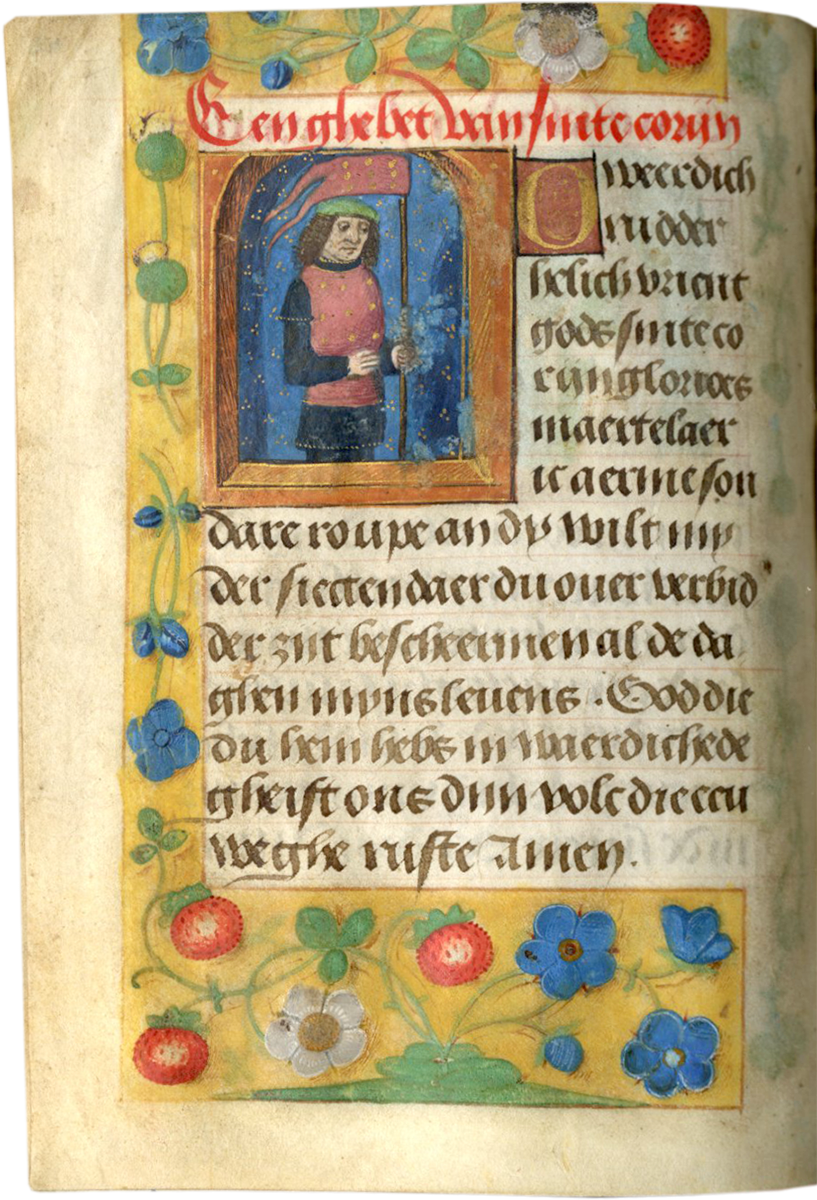 Een ghebet van sinte corijn
O weerdich
ridder
helich vrient
gods sinte co
rijn glorioes
maertelaer
ic aerme son
dare roupe an dy wilt my
der siecten daer du over verbid
der zijt bescheermen al de da
ghen myns levens . God die
du hem hebs in waerdichede
gheift ons dijn volc die eeu
weghe ruste Amen .